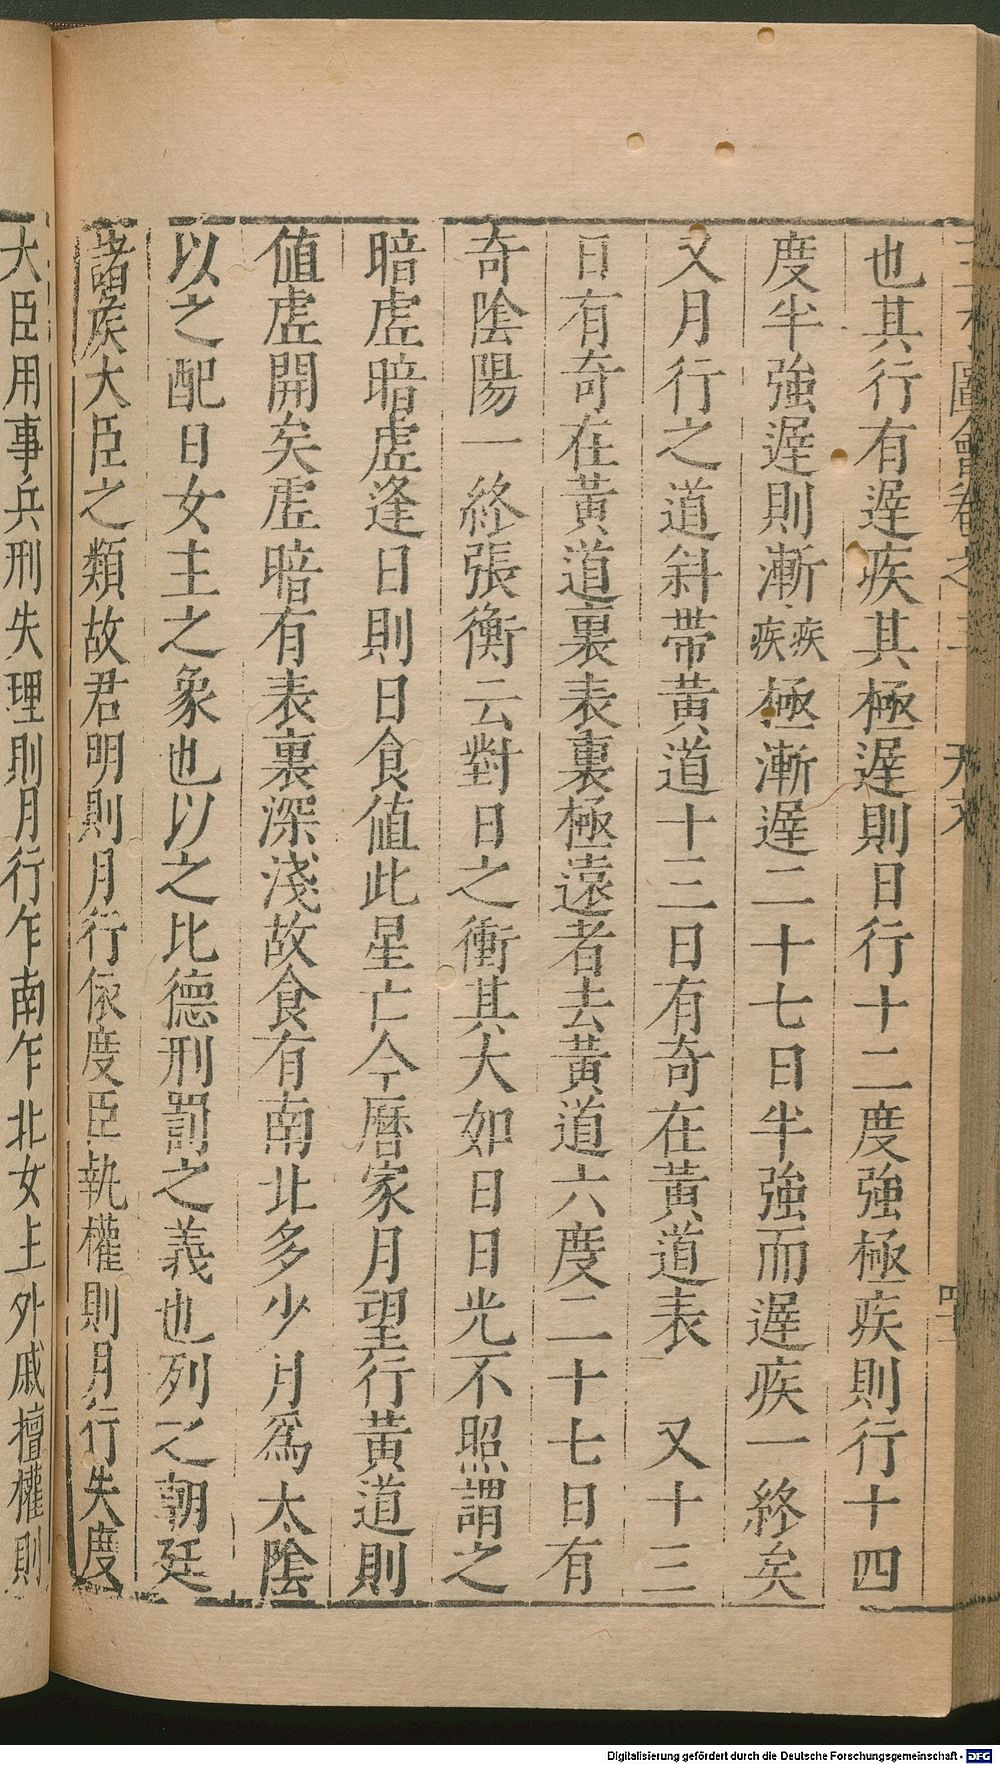 三才圖會卷之三 天文 四
也其行有遲疾其極遲則日行十二度強極疾則行十四
度半強遲則漸疾疾極漸遲二十七日半強而遲疾一終矣
又月行之道斜帶黃道十三日有奇在黃道表 又十三
日有奇在黃道裏表裏極遠者去黃道六度二十七日有
奇陰陽一終張衡云對日之衝其大如日日光不照謂之
暗虛暗虛逢日則日食值此星亡今曆家月望行黃道則
值虛開矣虛暗有表裏深淺故食有南北多少 月爲太陰
以之配日女主之象也以之比德刑罰之義也列之朝廷
諸矦大臣之類故君明則月行依度臣執權則月行失度
大臣用事兵刑失理則月行乍南乍北女主外戚擅權則
Digitalisierung gefördert durch die Deutsche Forschungsgemeinschaft - DFG